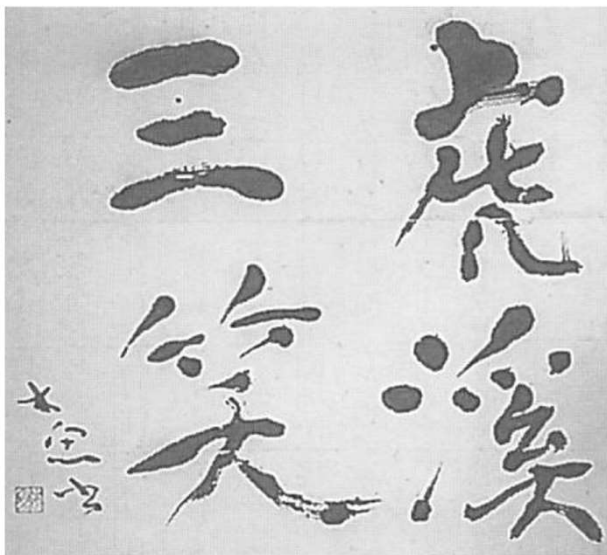 虎溪
三笑